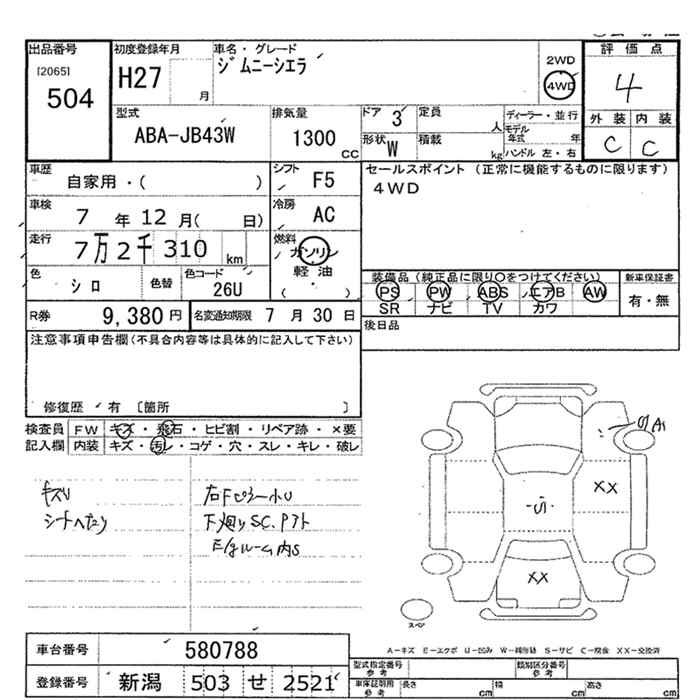 出品番号 初度登録年月 車名・グレード 評価点
[2065] H27 月 ジムニーシエラ 2WD 4WD 4
504
型式 排気量 ドア 3 定員 人 ディーラー・並行 外装 内装
ABA-JB43W 1300 CC 形状 W 積載 kg モデル年式 年 C C
ハンドル 左・右
車歴 自家用・( ) シフト F5 セールスポイント (正常に機能するものに限ります)
4WD
車検 7 年 12 月( 日) 冷房 AC
走行 7万2千310 km 燃料 ガソリン
軽油
( )
色 シロ 色替 色コード 26U 装備品 (純正品に限り○をつけてください) 新車保証書
PS PW ABS エアB AW 有・無
SR ナビ TV カワ
R券 9,380円 名変通知期限 7 月 30 日 後日品
注意事項申告欄(不具合内容等は具体的に記入して下さい)
修復歴 有 [箇所 ]
検査員 FW キズ・飛石・ヒビ割・リペア跡・×要
記入欄 内装 キズ・汚レ・コゲ・穴・スレ・キレ・破レ
A1
キズU 右Fピラー小U XX
シートヘタリ 下廻りSC.Pアト S
E/gルーム内S
XX
スペア
A-キズ E-エクボ U-凹み W-補修跡 S-サビ C-腐食 XX-交換済
車台番号 580788
型式指定番号 参考 類別区分番号 参考
登録番号 新潟 503 せ 2521 車庫証明用 参考 長さ cm 幅 cm 高さ cm